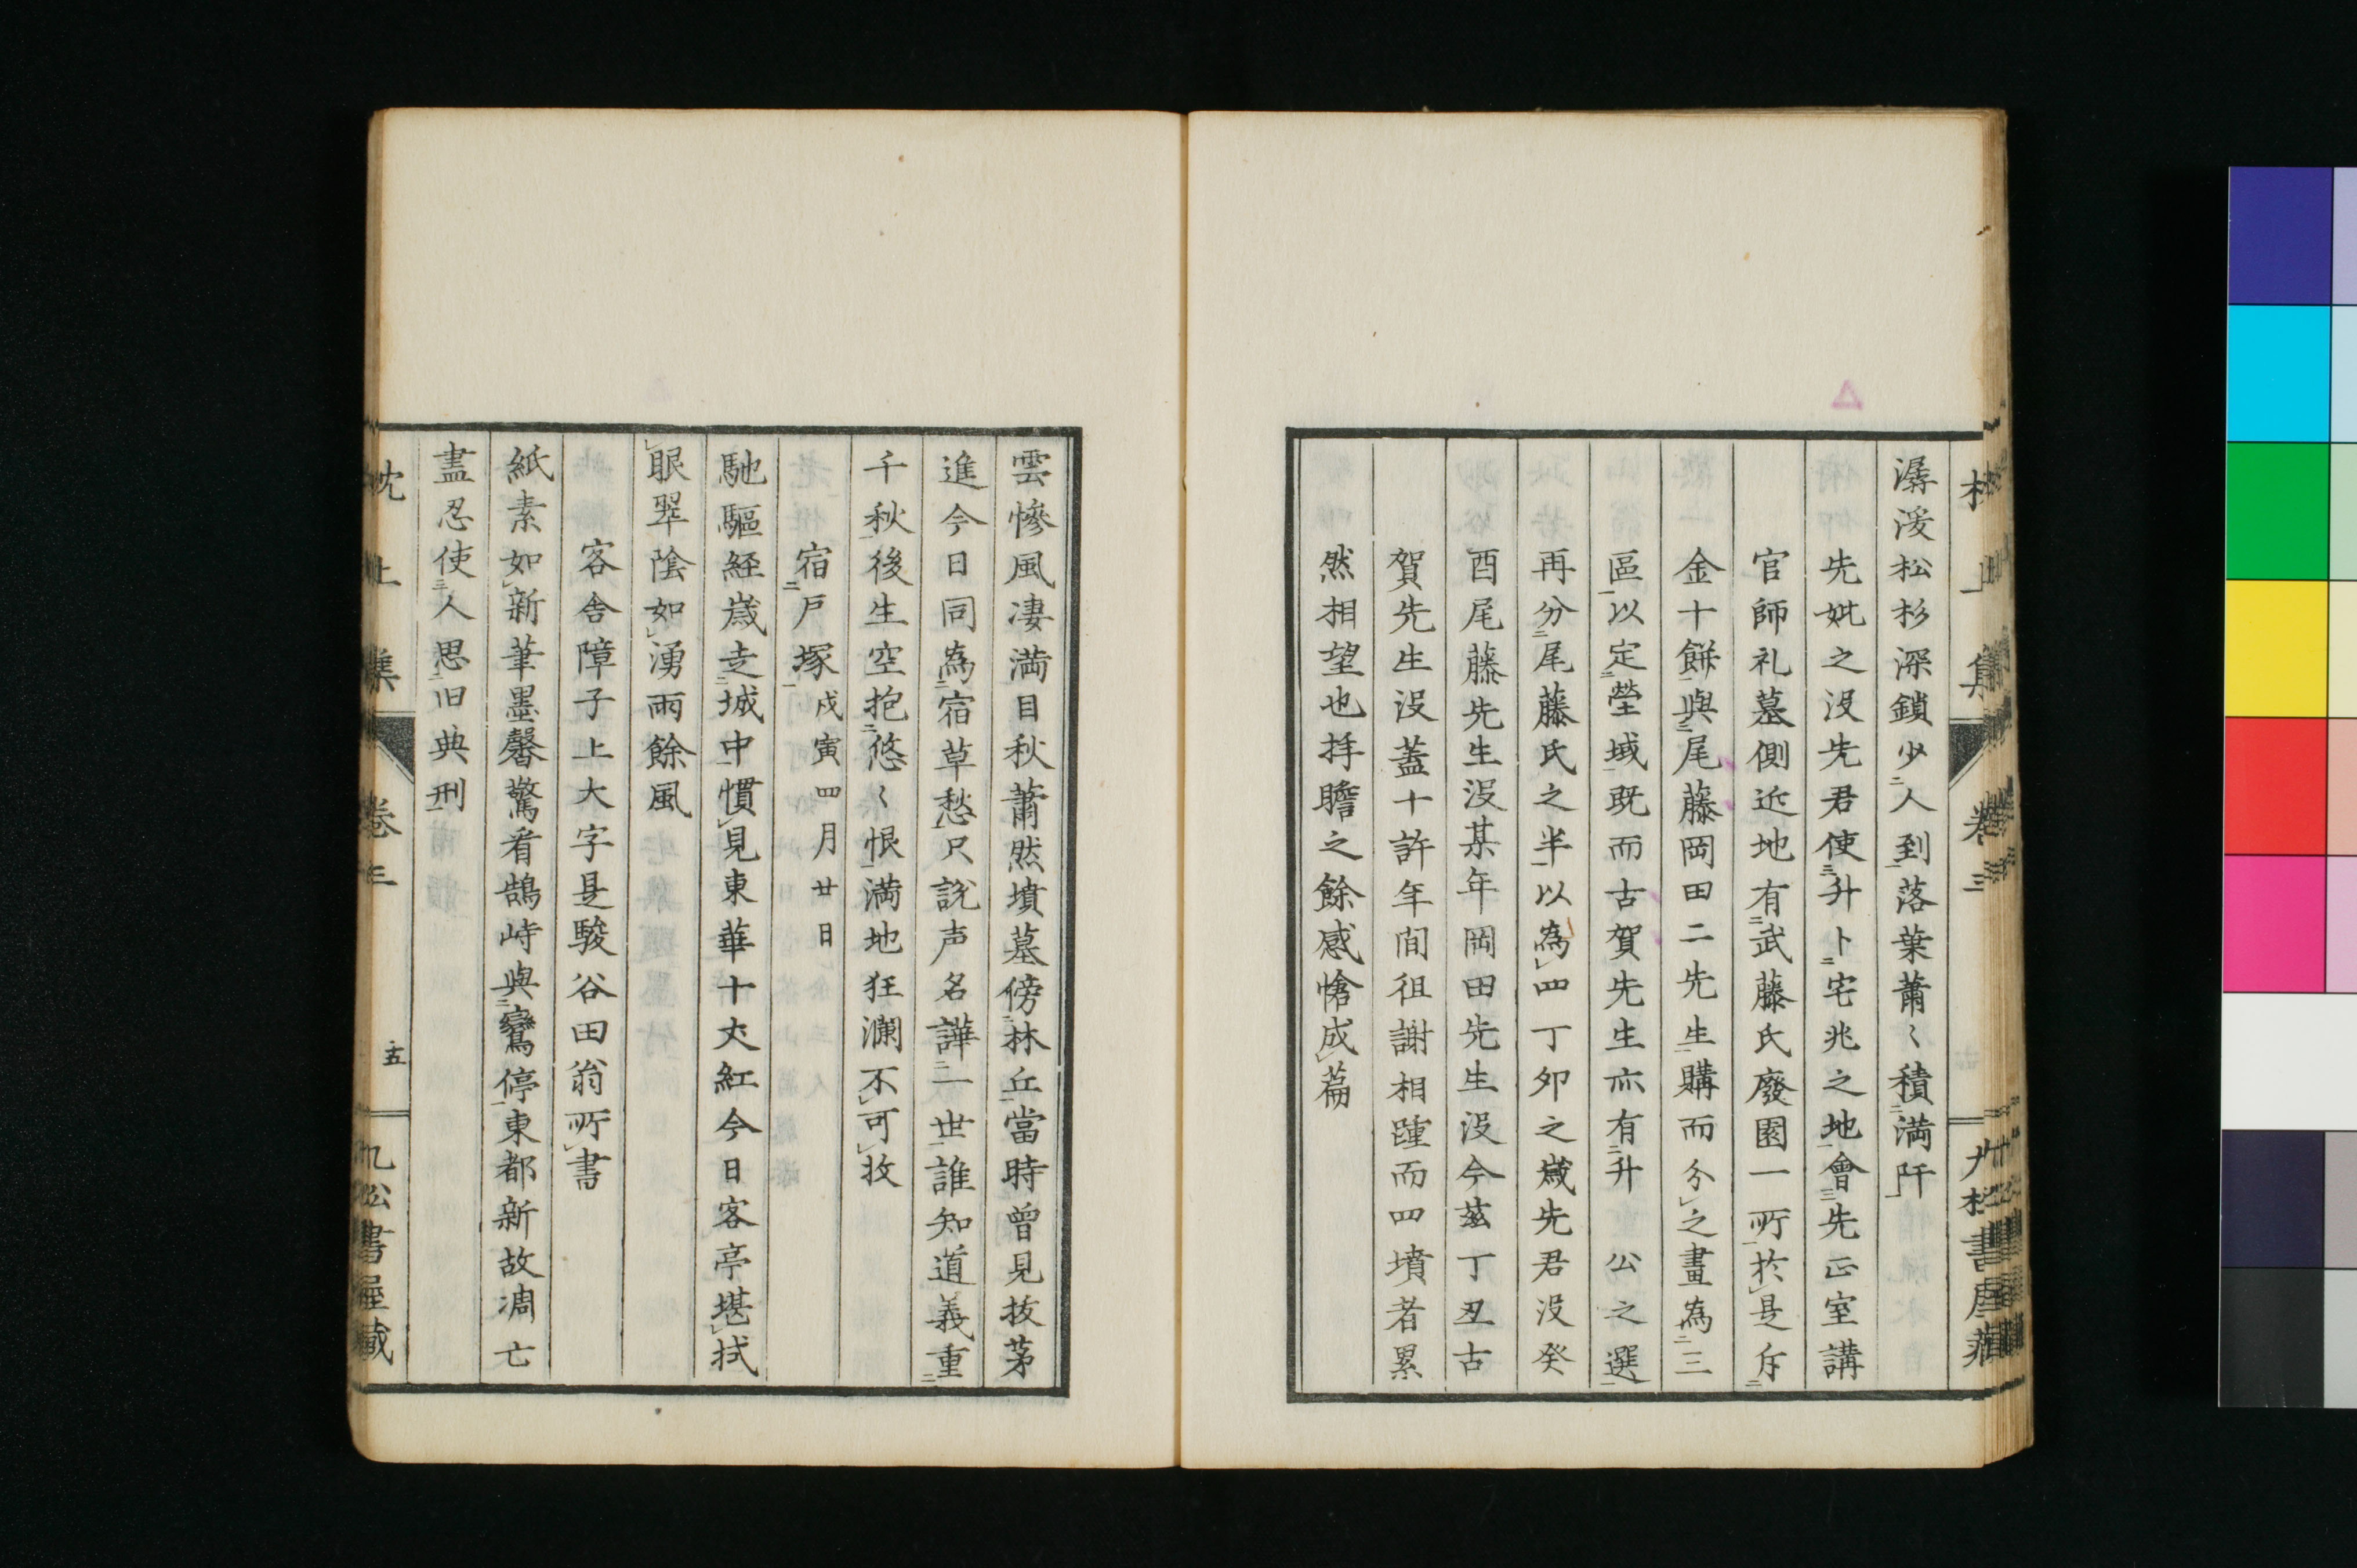 潺湲松杉深鎖少人到落葉蕭〻積満阡
先妣之沒先君使升卜宅兆之地會先正室講
官師礼墓側近地有武藤氏廢園一所於是斥
金十餅與尾藤岡田二先生購而分之畫為三
區以定塋域既而古賀先生亦有升 公之選
再分尾藤氏之半以為四丁卯之歳先君沒癸
酉尾藤先生沒某年岡田先生没今茲丁丑古
賀先生沒蓋十許年間徂謝相踵而四墳者累
然相望也拝瞻之餘感愴成篇
雲惨風凄満目秋蕭然墳墓傍林丘當時曽見抜茅
進今日同為宿草愁只説声名譁一世誰知道義重
千秋後生空抱悠〻恨満地狂瀾不可收
宿戸塚戊寅四月廿日
馳驅経歳走城中慣見東華十丈紅今日客亭堪拭
眼翠陰如湧雨餘風
客舎障子上大字是駿谷田翁所書
紙素如新筆墨馨驚看鵠峙與鸞停東都新故凋亡
盡忍使人思旧典刑
枕上集 卷三 五 九松書屋蔵